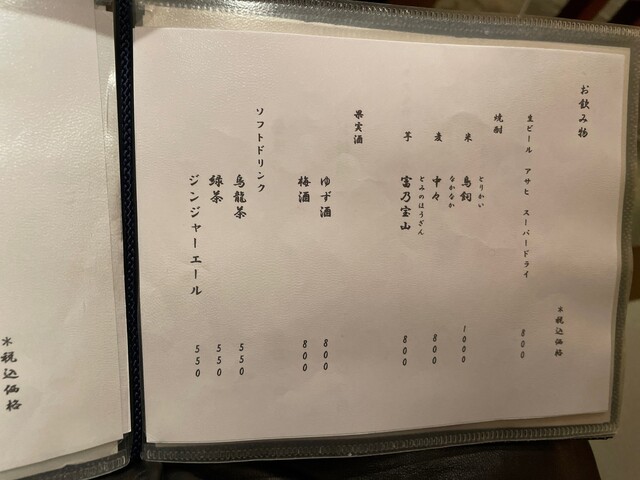 お飲み物
＊税込価格
生ビール アサヒ スーパードライ 800
焼酎
とりかい
米 鳥飼 1000
なかなか
麦 中々 800
とみのほうざん
芋 富乃宝山 800
果実酒
ゆず酒 800
梅酒 800
ソフトドリンク
烏龍茶 550
緑茶 550
ジンジャーエール 550
＊税込価格